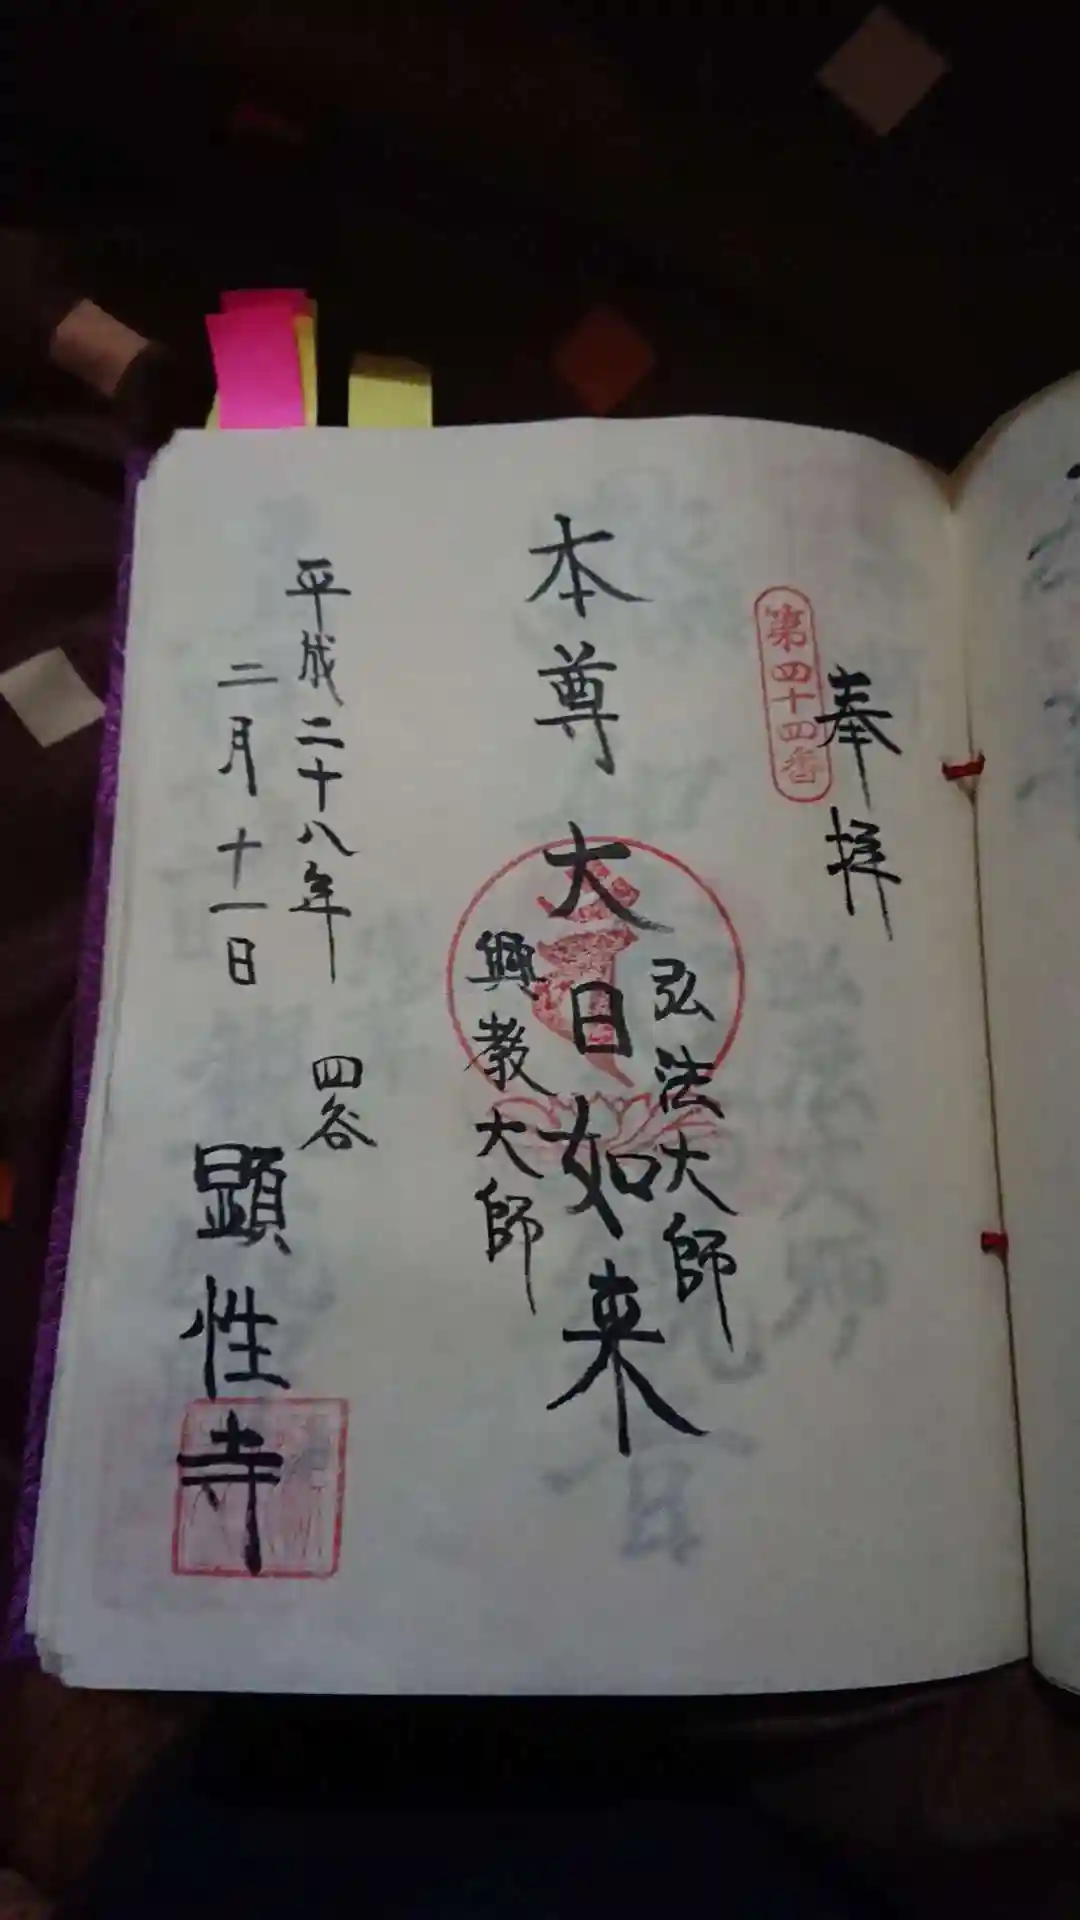 奉拝
第四十四番
弘法大師
本尊 大日如来
興教大師
平成二十八年
二月十一日
四谷
顕性寺